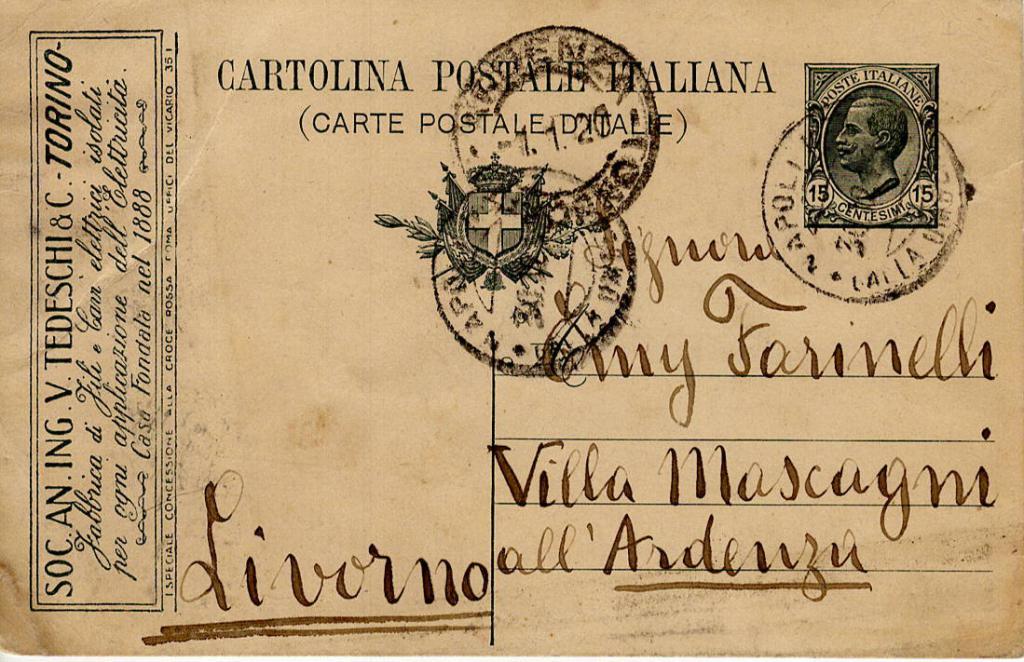 SOC. AN. ING. V. TEDESCHI & C. - TORINO -
Fabbrica di Fili e Cavi elettrici isolati
per ogni applicazione dell'Elettricità.
Casa Fondata nel 1888
SPECIALE CONCESSIONE ALLA CROCE ROSSA ROMA UFFICI DEL VICARIO 35
CARTOLINA POSTALE ITALIANA
(CARTE POSTALE D'ITALIE)
POSTE ITALIANE
15 15
CENTESIMI
NAPOLI
NAPOLI
Signora
Emy Farinelli
Villa Mascagni
all'Ardenza
Livorno